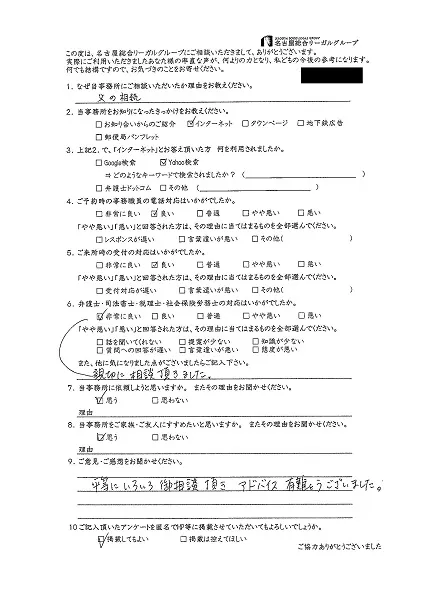 NAGOYA SOGO LEGAL GROUP
名古屋総合リーガルグループ
この度は、名古屋総合リーガルグループにご相談いただきまして、ありがとうございます。
実際にご利用いただきましたあなた様の率直な声が、何よりの力となり、私どもの今後の参考になります。
何でも結構ですので、お気づきのことをお寄せください。
1. なぜ当事務所にご相談いただいたか理由をお教えください。
父の相続
2. 当事務所をお知りになったきっかけをお教えください。
□お知り合いからのご紹介 ☑インターネット □タウンページ □地下鉄広告
□郵便局パンフレット
3. 上記2. で、「インターネット」とお答え頂いた方 何を利用されましたか。
□Google検索 ☑Yahoo検索
⇒どのようなキーワードで検索されましたか？( )
□弁護士ドットコム □その他 ( )
4. ご予約時の事務職員の電話対応はいかがでしたか。
□非常に良い ☑良い □普通 □やや悪い □悪い
「やや悪い」「悪い」と回答された方は、その理由に当てはまるものを全部選んでください。
□レスポンスが遅い □言葉遣いが悪い □その他( )
5. ご来所時の受付の対応はいかがでしたか。
□非常に良い ☑良い □普通 □やや悪い □悪い
「やや悪い」「悪い」と回答された方は、その理由に当てはまるものを全部選んでください。
□受付対応が遅い □言葉遣いが悪い □その他( )
6. 弁護士・司法書士・税理士・社会保険労務士の対応はいかがでしたか。
☑非常に良い □良い □普通 □やや悪い □悪い
「やや悪い」「悪い」と回答された方は、その理由に当てはまるものを全部選んでください。
□話を聞いてくれない □提案が少ない □知識が少ない
□質問への回答が遅い □言葉遣いが悪い □態度が悪い
また、他に気になりました点がございましたらご記入下さい。
親切に相談頂きました。
7. 当事務所に依頼しようと思いますか。 またその理由をお聞かせください。
☑思う □思わない
理由
8. 当事務所をご家族・ご友人にすすめたいと思いますか。 またその理由をお聞かせください。
☑思う □思わない
理由
9. ご意見・ご感想をお聞かせください。
平等にいろいろ御相談頂き アドバイス 有難とうございました。
10ご記入頂いたアンケートを匿名でHP等に掲載させていただいてもよろしいでしょうか。
☑掲載してもよい □掲載は控えてほしい
ご協力ありがとうございました